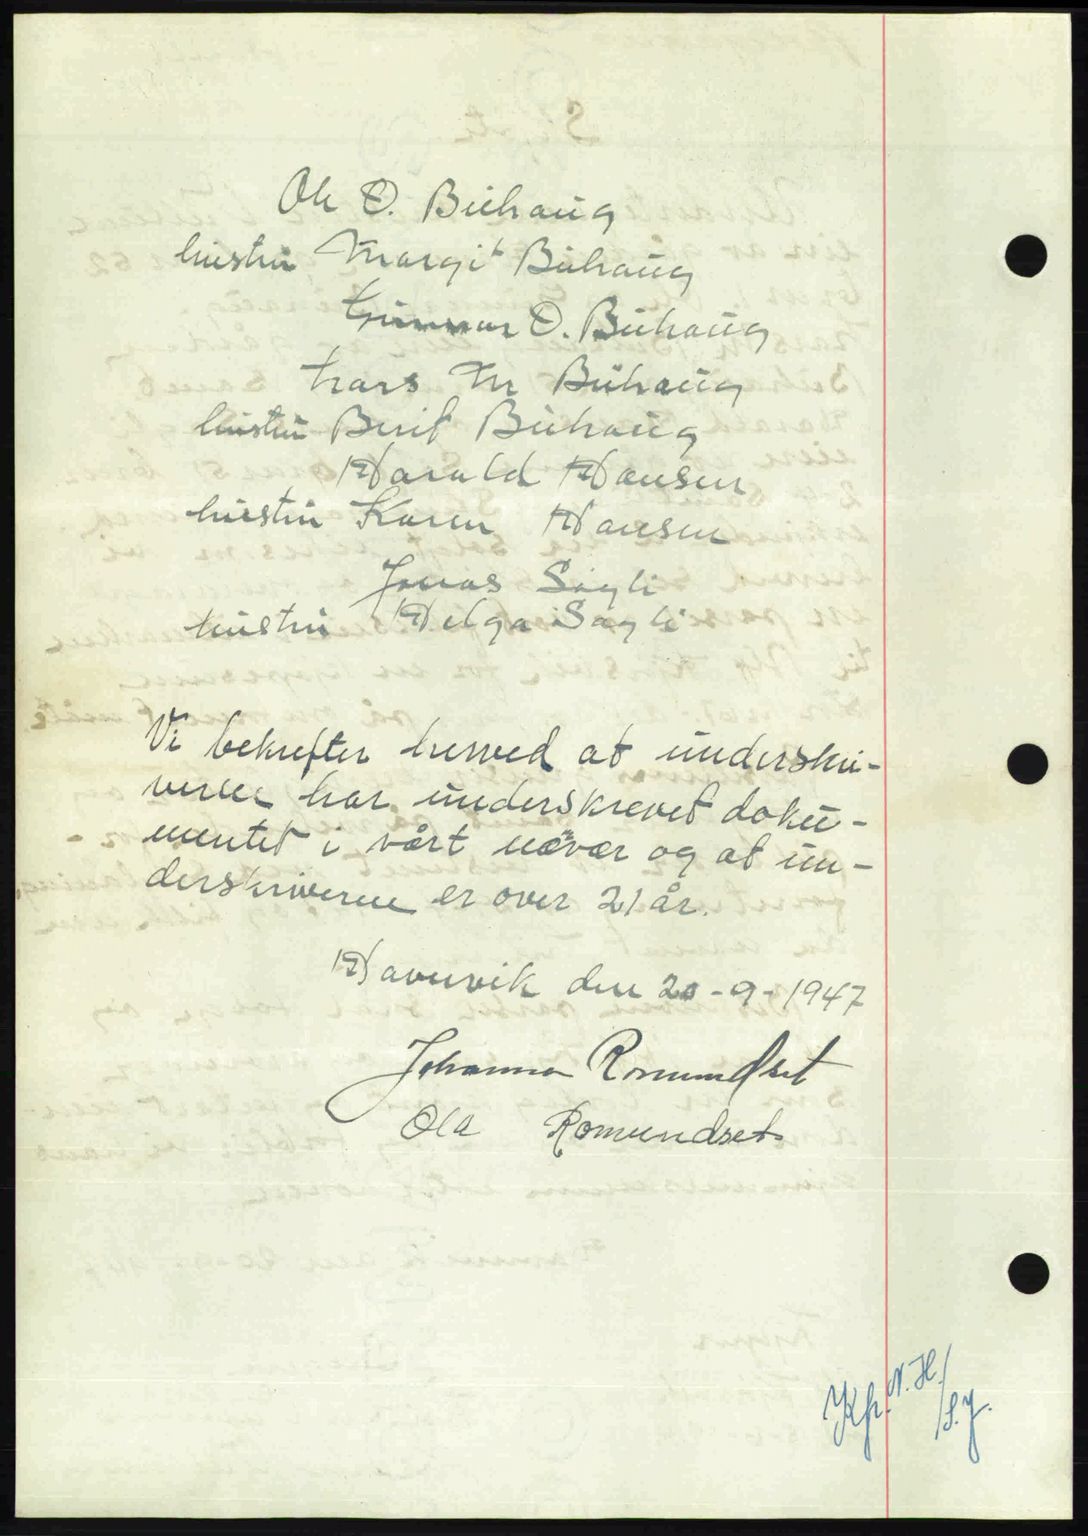 Ole O. Buhaug
hustru Margit Buhaug
Gunnar O. Buhaug
Lars M Buhaug
hustru Berit Buhaug
Harald Hansen
hustru Karen Hansen
Jonas Sagli
hustru Helga Sagli
Vi bekrefter herved at underskri-
verne har underskrevet doku-
mentet i vårt nævær og at un-
derskriverne er over 21 år.
Havnvik den 20-9-1947
Johanna Romundset
Ola Romundset
Kfr. N.H./S.J.